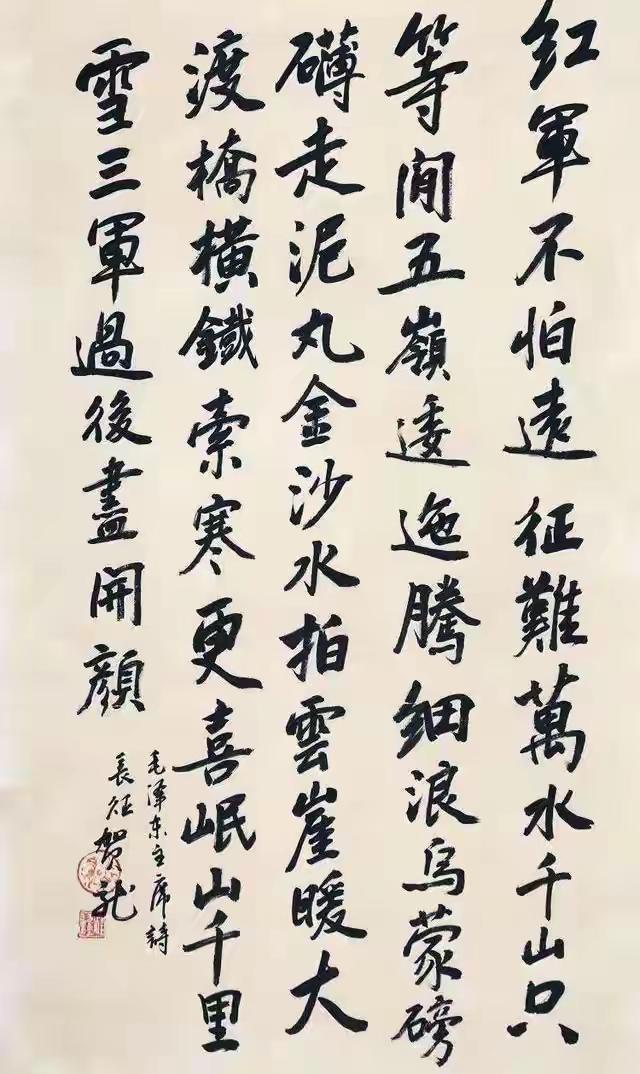 红軍不怕遠征難萬水千山只
等閒五嶺逶迤騰細浪烏蒙磅
礴走泥丸金沙水拍雲崖暖大
渡橋橫鐵索寒更喜岷山千里
雪三軍過後盡開顏
毛泽东主席詩
長征贺龙